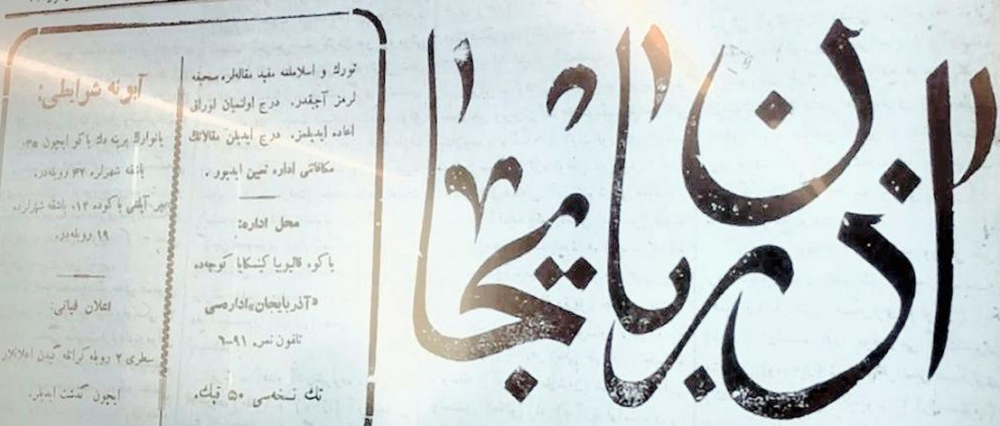 آذربایجان
تورك و اسلاملغه مفید مقاله‌لره صحیفه
لرمز آچیقدر. درج اولنمیان اوراق
اعاده ایدیلمز. درج ایدیلن مقالاتك
مكافاتی اداره تعیین ایدیور.
محل اداره:
باكو،
كوچه‌ده
«آذربایجان» اداره‌سی
تلفون نمره ۹۱-۶
تك نسخه‌سی ۵۰ قپك.
آبونه شرایطی:
یانوارك برینه دك باكو ایچون ۳۵،
باشقه شهرلره ۴۲ روبله‌در.
بر آیلغی باكوده ۱۲، باشقه شهرلرده
۱۹ روبله‌در.
اعلان فیاتی:
سطری ۲ روبله گیدن اعلانلار
ایچون گذشت ایدیلر.